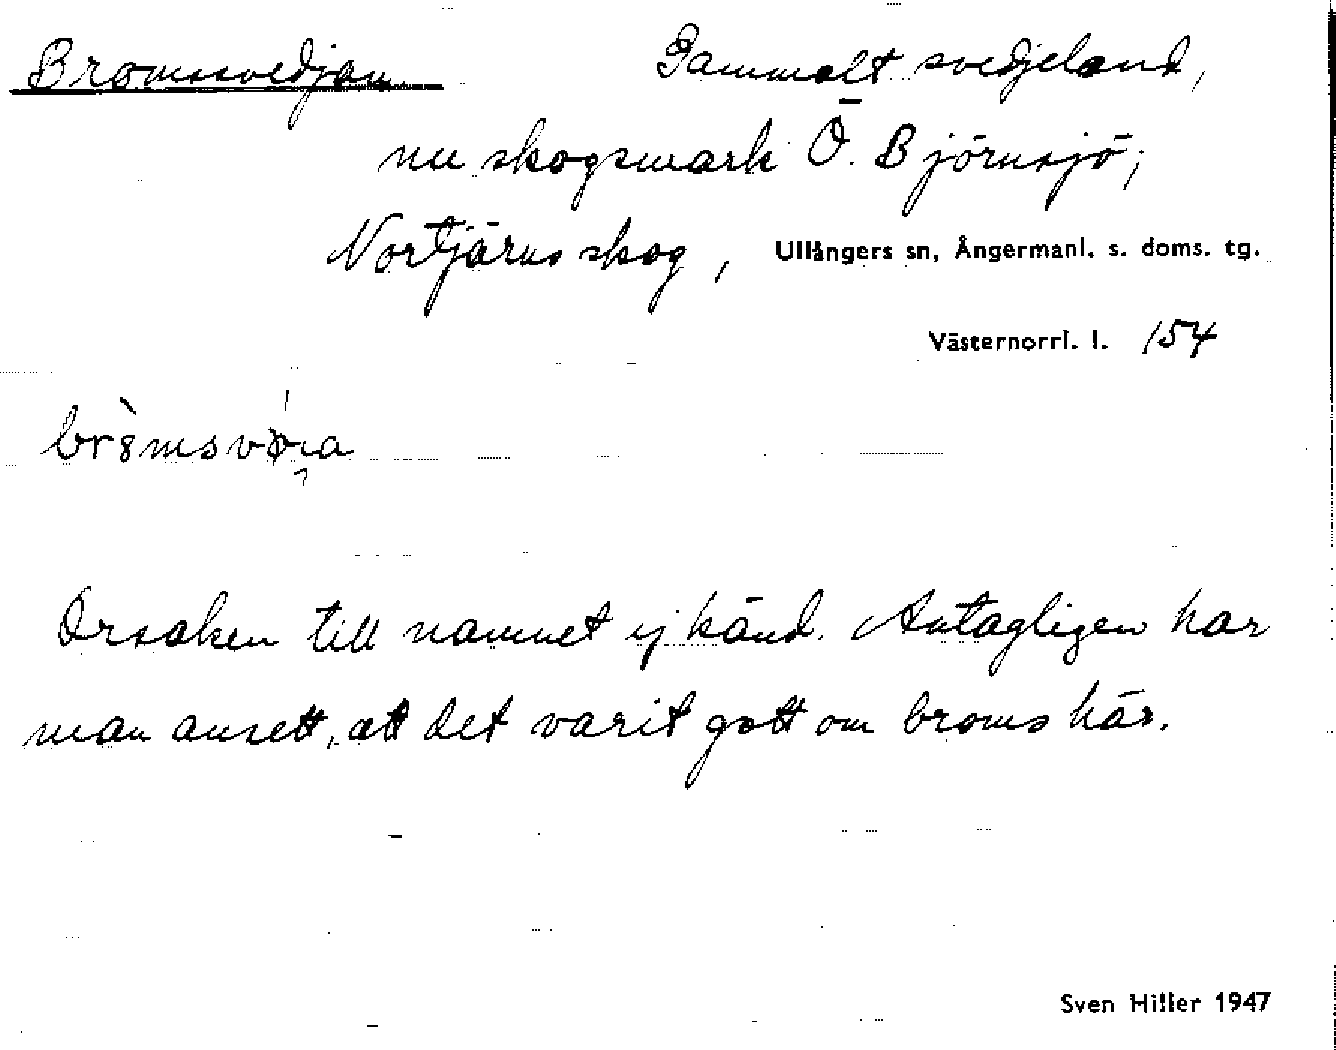 Bromssvedjan Gammalt svedjeland,
nu skogsmark Ö. Björnsjö;
Nortjärns skog, Ullångers sn, Ångermanl. s. doms. tg.
Västernorrl. l. 154
Orsaken till namnet ej känd. Antagligen har
man ansett, att det varit gott om broms här.
Sven Hiller 1947